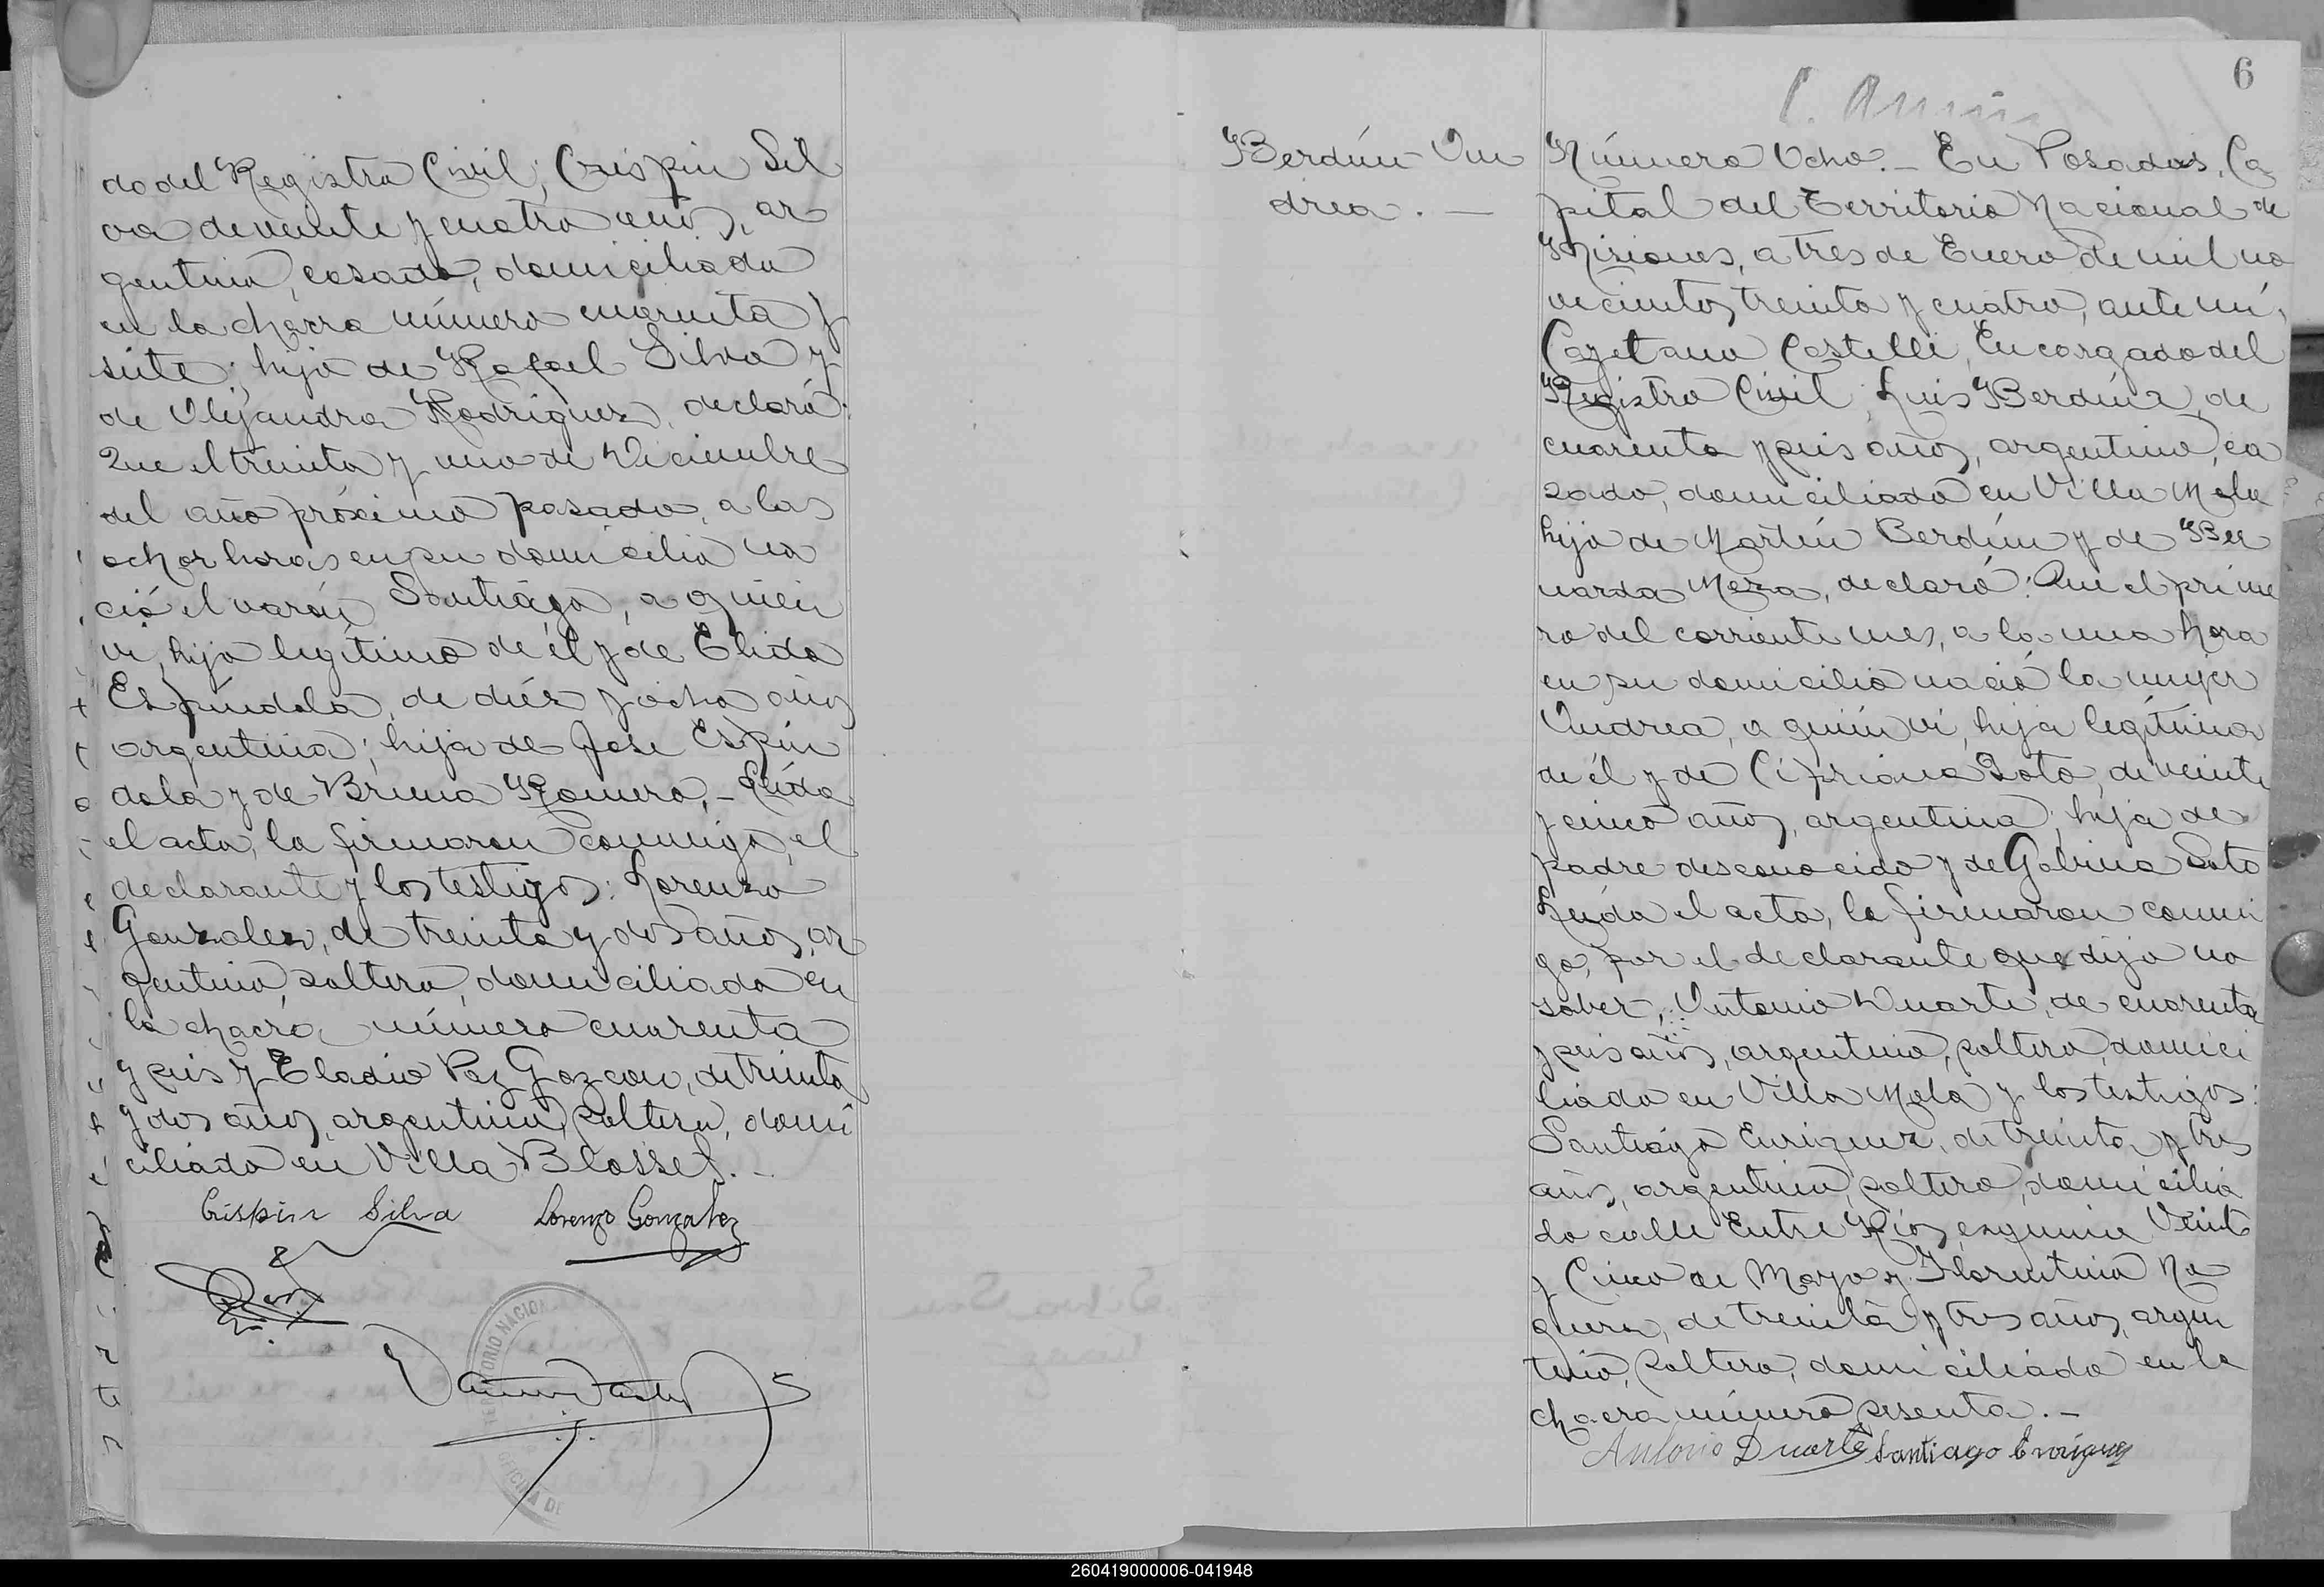 do del Registro Civil; Crispin Sil
va de veinte y cuatro años, ar
gentino, casado, domiciliado
en la chacra número cuarenta y
siete; hijo de Rafael Silva y
de Alejandra Rodriguez, declaró:
Que el treinta y uno de Diciembre
del año próximo pasado, a las
ocho horas en su domicilio na
ció el varón Santiago, a quien
vi, hijo legítimo de él y de Elida
Espíndola, de diéz y ocho años
argentina; hija de Jose Espin
dola y de Bruna Romero,- Leida
el acta, la firmaron conmigo, el
declarante y los testigos: Lorenzo
Gonzalez, de treinta y dos años, ar
gentino, soltero, domiciliado en
la chacra número cuarenta
y seis y Eladio Paz, de treinta
y dos años, argentino, soltero, domi
ciliado en Villa Blosset.-
Crispin Silva Lorenzo Gonzalez
6
Berdún An
drea.-
Número Ocho.- En Posadas, Ca
pital del Territorio Nacional de
Misiones, a tres de Enero de mil no
vecientos treinta y cuatro, ante mí,
Cayetano Castelli, Encargado del
Registro Civil, Luis Berdún, de
cuarenta y seis años, argentino, ca
sado, domiciliado en Villa Mola
hijo de Martín Berdún y de Ber
narda Meza, declaró: Que el prime
ro del corriente mes, a la una hora
en su domicilio nació la mujer
Andrea, a quién vi, hija legítima
de él y de Cipriana Soto, de veinte
y cinco años, argentina; hija de
padre desconocido y de Gabina Soto
Leida el acta, la firmaron conmi
go, por el declarante que dijo no
saber, Antonio Duarte, de cuarenta
y seis años, argentino, soltero, domici
liado en Villa Mola y los testigos:
Santiago Enriquez, de treinta y tres
años, argentino, soltero, domicilia
do calle Entre Ríos esquina Veinte
y Cinco de Mayo y Florentino No
guera, de treinta y tres años, argen
tino, soltero, domiciliado en la
chacra número sesenta.-
Antonio Duarte Santiago Enriquez
260419000006-041948